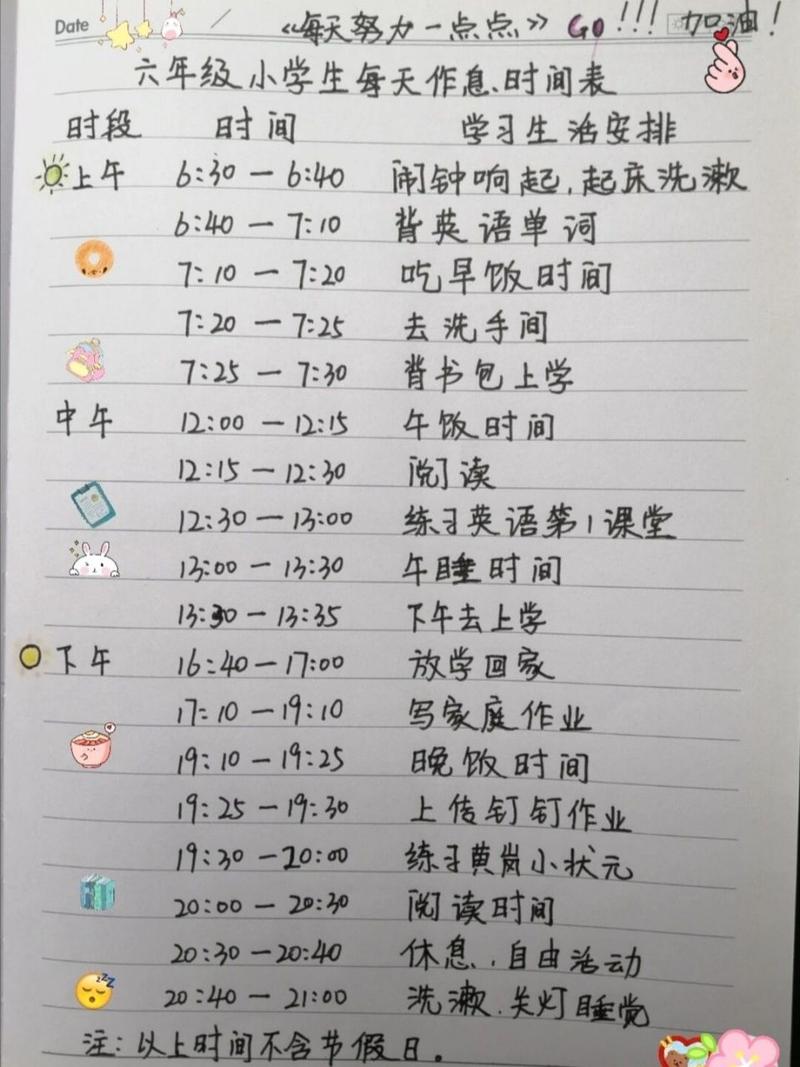 Date 《每天努力一点点》 GO!!! 加油!
六年级小学生每天作息、时间表
时段 时间 学习生活安排
上午 6:30 — 6:40 闹钟响起,起床洗漱
6:40 — 7:10 背英语单词
7:10 — 7:20 吃早饭时间
7:20 — 7:25 去洗手间
7:25 — 7:30 背书包上学
中午 12:00 — 12:15 午饭时间
12:15 — 12:30 阅读
12:30 — 13:00 练习英语第1课堂
13:00 — 13:30 午睡时间
13:30 — 13:35 下午去上学
下午 16:40 — 17:00 放学回家
17:10 — 19:10 写家庭作业
19:10 — 19:25 晚饭时间
19:25 — 19:30 上传钉钉作业
19:30 — 20:00 练习黄岗小状元
20:00 — 20:30 阅读时间
20:30 — 20:40 休息、自由活动
20:40 — 21:00 洗漱、关灯睡觉
注:以上时间不含节假日。